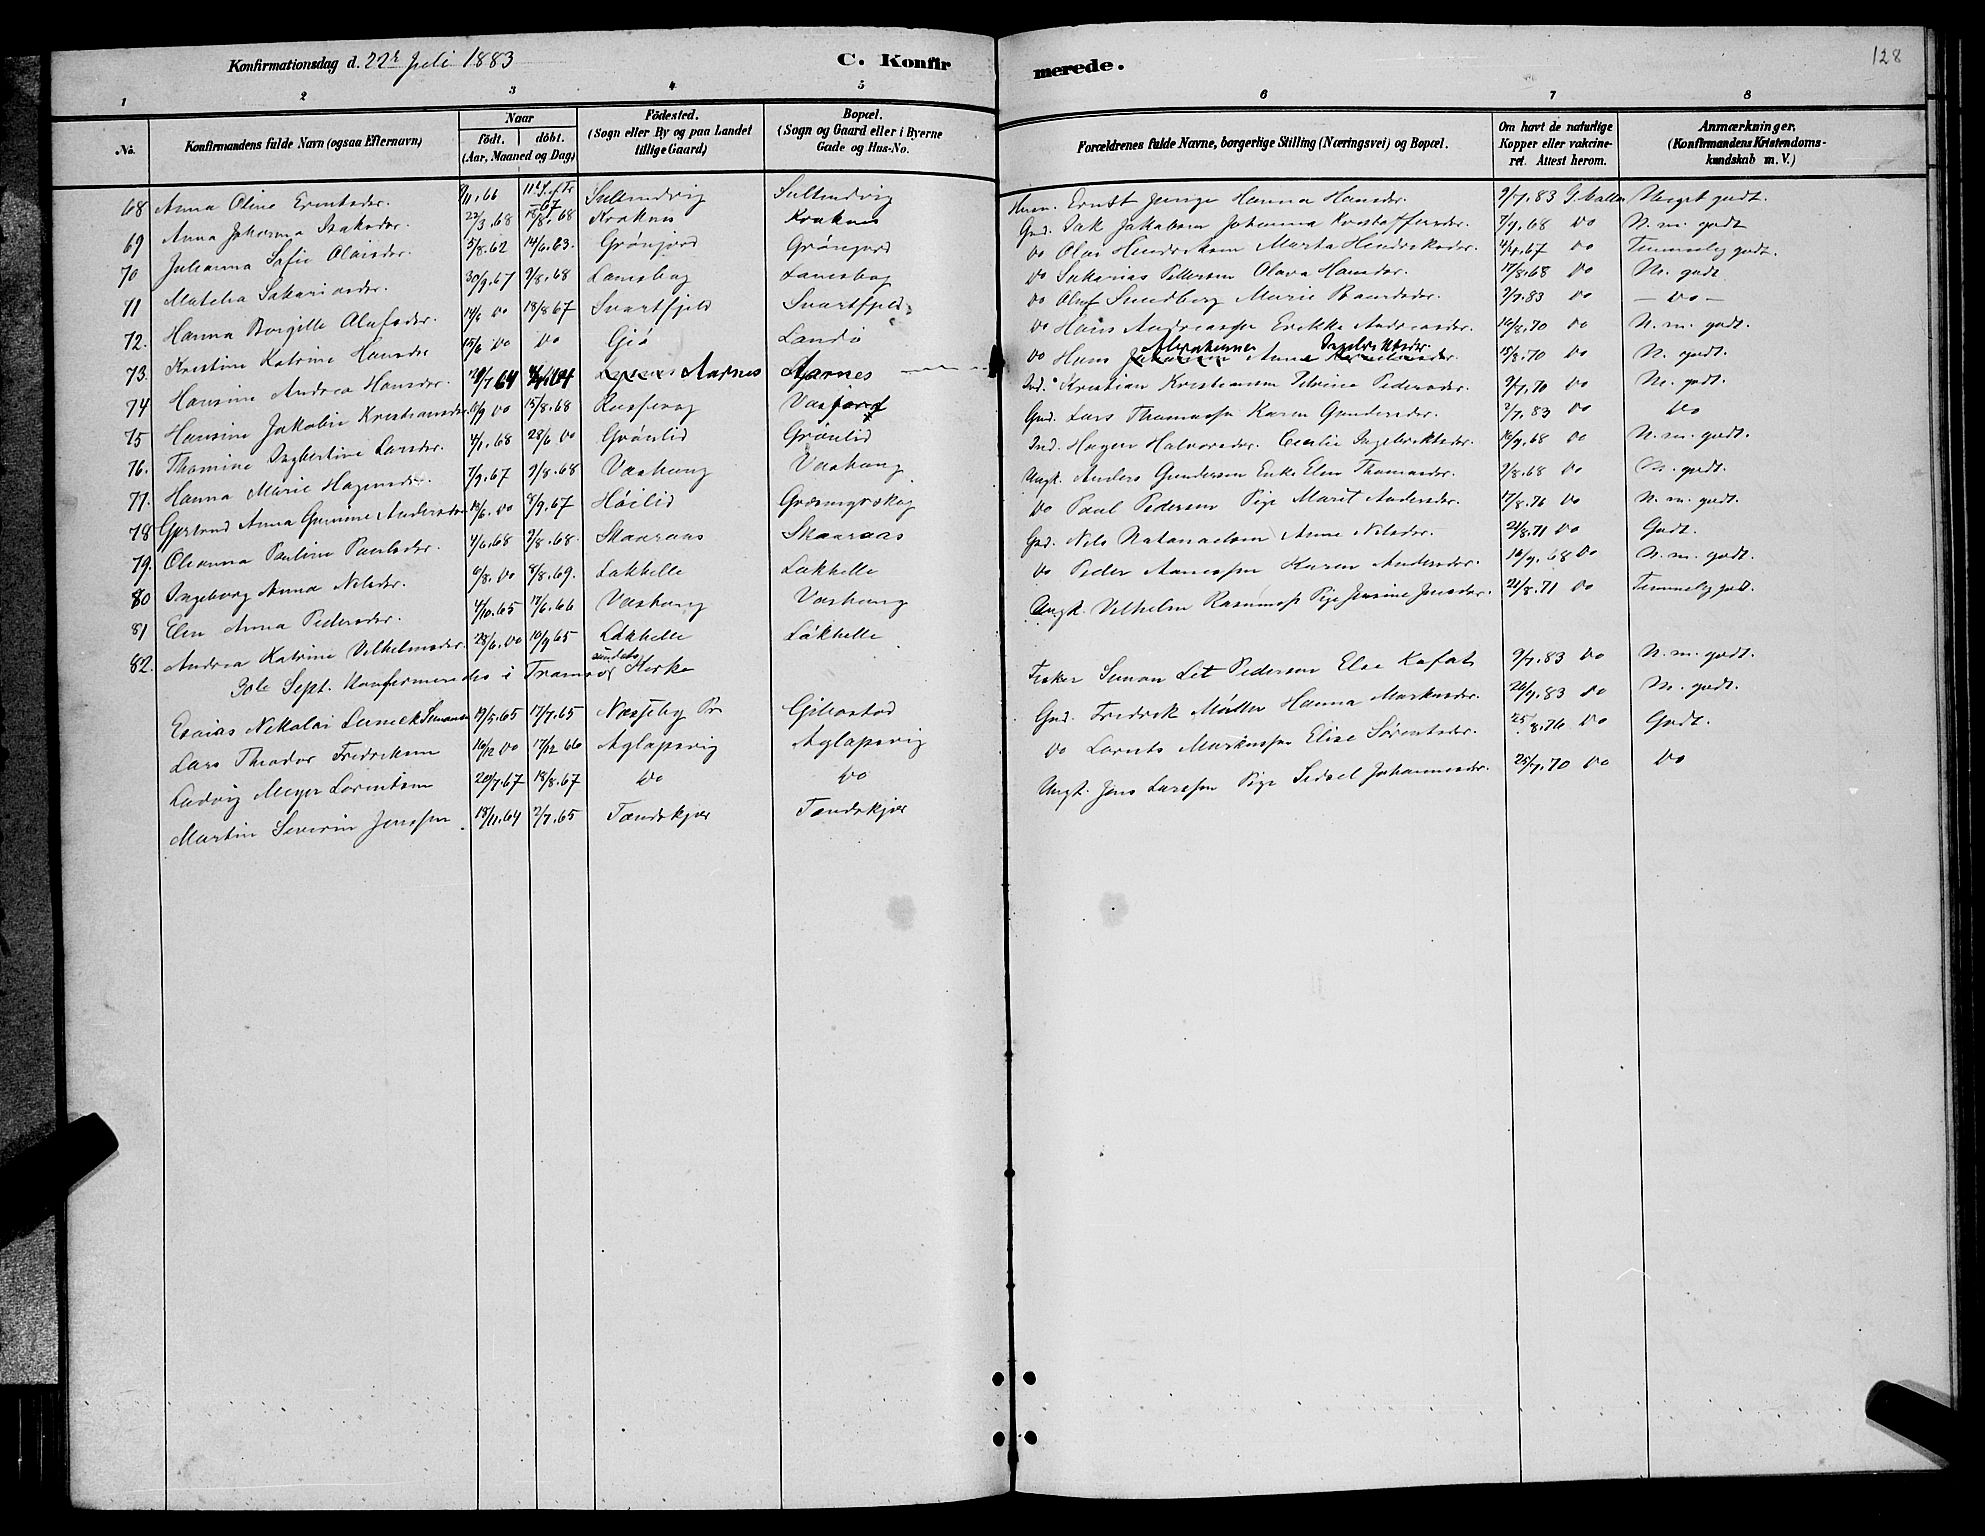 Konfirmationsdag d. 22de Juli 1883 C. Konfirmerede. 128
1 2 3 4 5 6 7 8
No. Konfirmandens fulde Navn (ogsaa Efternavn) Naar födt. döbt. (Aar, Maaned og Dag) Födested. (Sogn eller By og paa Landet tillige Gaard) Bopæl. (Sogn og Gaard eller i Byerne Gade og Hus-No. Forældrenes fulde Navne, borgerlige Stilling (Næringsvei) og Bopæl. Om havt de naturlige Kopper eller vakcineret. Attest herom. Anmærkninger. (Konfirmandens Kristendomskundskab m. V.)
68 Anna Oline Erntsdr. 67 Sultindvig Sultindvig Ernst Junge Hanna Hansdr. 9/7.83 Meget godt.
69 Anna Johanna Isaksdr. 22/3.68 18/8.68 Kraknes Kraknes Gmd. Isak Jakobsen Johanna Kristoffersdr. 7/9.68 do N. m. godt
70 Julianna Sofie Olaisdr. 5/8.62 14/6.63. Grönjord Grönjord do Olai Hendriksen Marta Hendriksdr. 67 do Temmelig godt.
71 Matelia Sakariasdr. 30/9.67 9/8.68 Lanesbog Lanesbog do Sakarias Pettersen Olava Hansdr. 17/8.68 do M. godt
72. Hanna Bergitte Olufsdr. 14/6 do 18/8 67 Svartfjeld Svartfjeld do Oluf Sundberg Marie Baardsdr. 9/7.83 do - do -
73. Kristine Katrine Hansdr 15/6 do do Gjö Landö do Hans Andreassen Erikka Andreasdr. 16/8.70 do N. m. godt.
74 Hansine Andrea Hansdr. 64 Aarnes Aarnes do Hans Abrahamsen Anna Ingebriktsdr. 15/8.70 do M. godt.
75 Hansine Jakobie Kristiansdr. 10/9 do 15/8.68 Russevag Vasjord Ind. Kristian Kristiansen Petrine Pedersdr. 9/7.70 do M. godt.
76. Thomine Ingbertine Larsdr. 4/1.68 28/6 do Grönlid Grönlid Gmd. Lars Thomassen Karen Gundersdr. 2/7.83 do do
77. Hanna Marie Hagensdr. 7/9.67 9/8.68 Vashaug Vashaug Ind. Hagen Halvorsdr. Cecilie Ingebriktsdr. 16/9.68 do N. m. godt.
78 Gjertrud Anna Gurine Andersdr 13/6. do 8/9.67 Höilid Græsmyrskog Ungk. Anders Gundersen Enke Elen Thomasdr. 9/8.68 do M. godt.
79. Oleanna Pauline Paulsdr. 4/6.68 9/8.68. Skaaraas Skaaraas do Paul Pedersen Pige Marit Andersdr. 17/8.76 do N. m. godt.
80 Ingeborg Anna Nilsdr. 6/8. do 8/8.69. Lakhelle Lakhelle Gmd. Nils Natanaelsen Anne Nilsdr. 21/8.71 do Godt.
81 Elen Anna Pedersdr. 4/10.65 17/6.66 Vashaug Vashaug do Peder Karen Andersdr. 16/9.68 do N. m. godt.
82. Andrea Katrine Vilhelmsdr. 28/6. do 10/9 65 Lakhelle Lakhelle Ungk. Vilhelm Rasmuss. Pige Jensine Jensdr. 21/8.71 do Temmelig godt.
30te Sept. Konfirmerede i Tromsösundets Kirke
Esaias Nikolai Simonsen 19/5.65 17/7.65 Næsseby Pr Gibostad Fisker Simon Let Pedersen Else 9/7.83 do N. m. godt.
Lars Theodor Fredriksen 16/12 do 17/12 66 Aglapsvig Aglapsvig Gmd. Fredrik Möller Hanna Markusdr. 26/9.83 do M. godt.
Ludvig Meyer Lorentsen 20/7.67 18/8.67 do do do Lorents Markussen Elise Sörentsdr. 25/8.76 do Godt.
Martin Severin Jenssen 18/11.64 2/7.65 Tendskjær Tendskjær Ungk. Jens Larssen Pige Sidsel Johannesdr. 25/7.70 do do